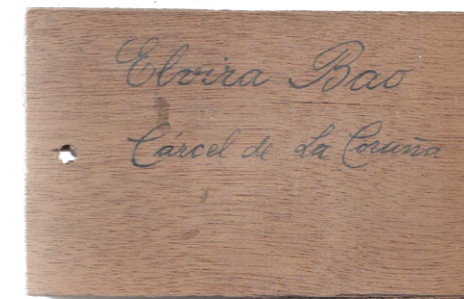 Elvira Bao
Cárcel de La Coruña